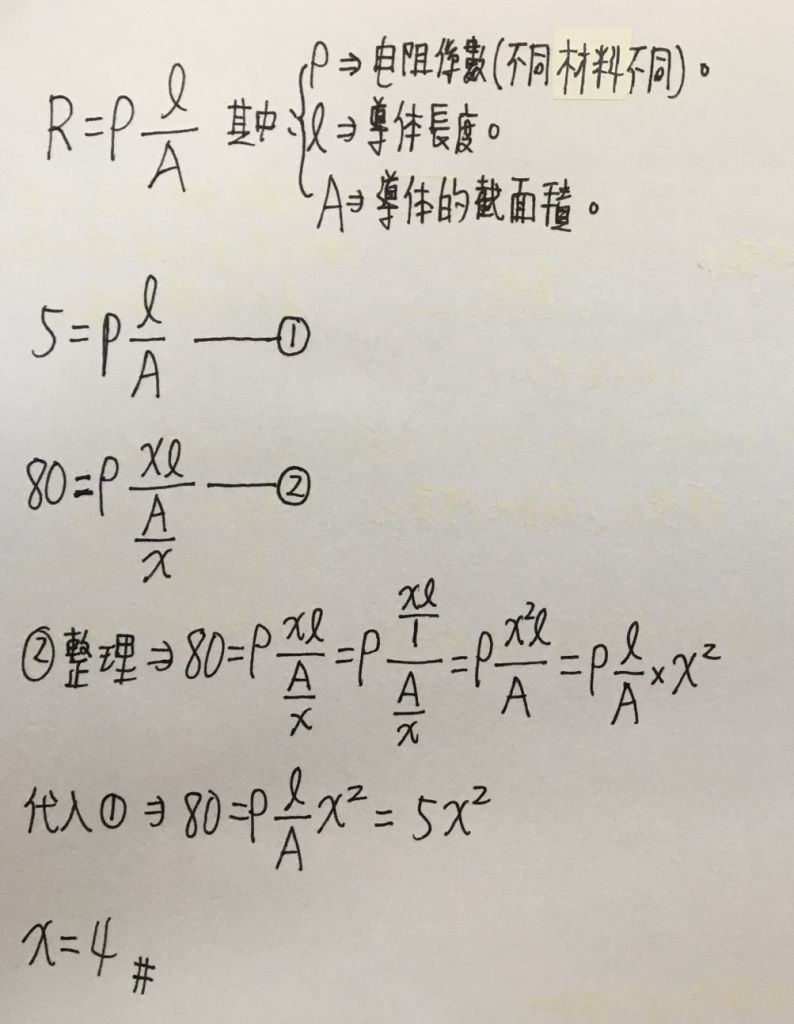 R=ρ l/A 其中 { ρ⇒电阻係數(不同材料不同)。
l⇒導体長度。
A⇒導体的截面積。
5=ρ l/A ——①
80=ρ xl/(A/x) ——②
②整理⇒80=ρ xl/(A/x)=ρ (xl/1)/(A/x)=ρ x²l/A=ρ l/A×x²
代入①⇒80=ρ l/A x²=5x²
x=4 #